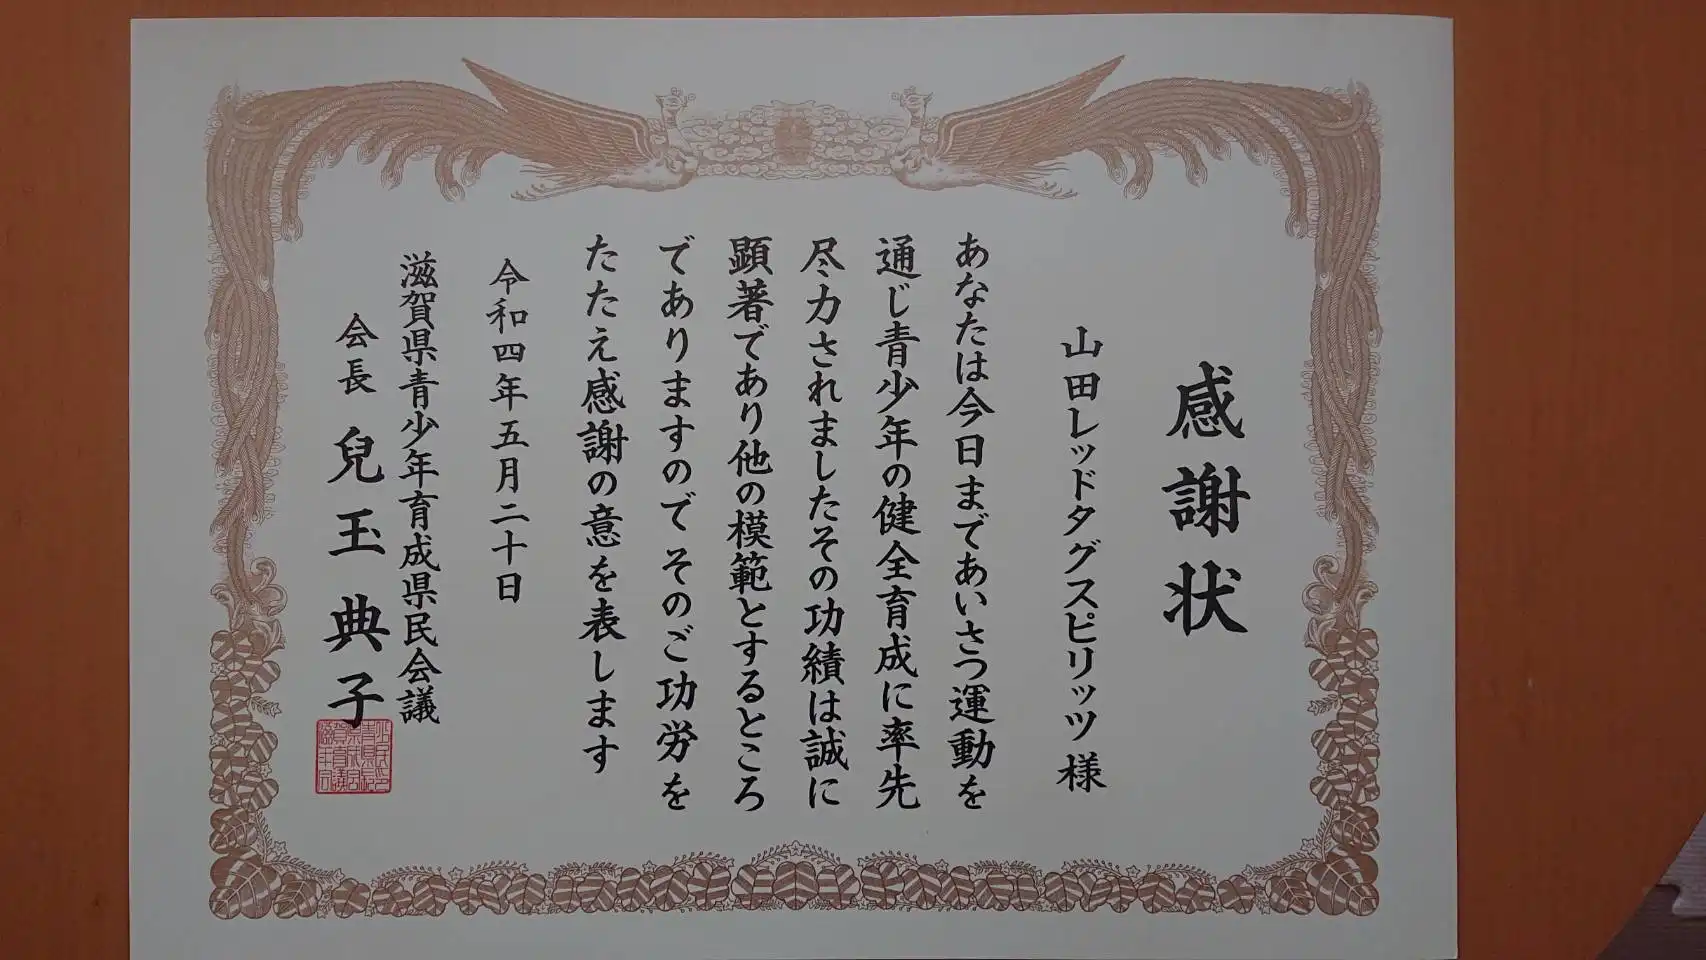 感謝状
山田レッドタグスピリッツ 様
あなたは今日まであいさつ運動を
通じ青少年の健全育成に率先
尽力されましたその功績は誠に
顕著であり他の模範とするところ
でありますので そのご功労を
たたえ感謝の意を表します
令和四年五月二十日
滋賀県青少年育成県民会議
会長 兒玉典子